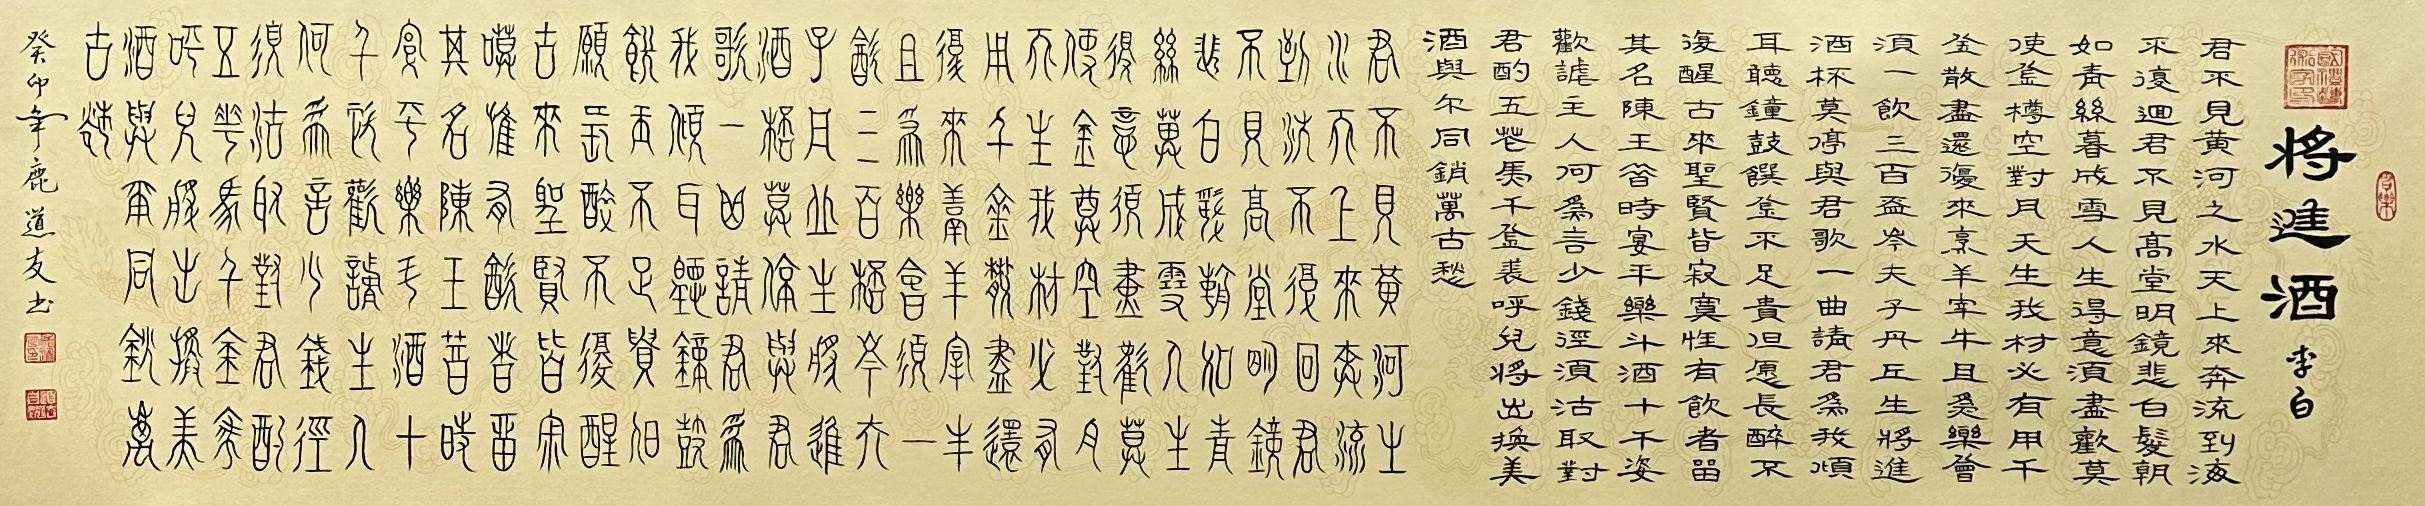 將進酒 李白
君不見黃河之水天上來奔流到海
不復迴君不見高堂明鏡悲白髮朝
如青絲暮成雪人生得意須盡歡莫
使金樽空對月天生我材必有用千
金散盡還復來烹羊宰牛且為樂會
須一飲三百盃岑夫子丹丘生將進
酒杯莫停與君歌一曲請君為我傾
耳聽鐘鼓饌金不足貴但愿長醉不
復醒古來聖賢皆寂寞惟有飲者留
其名陳王昔時宴平樂斗酒十千姿
歡謔主人何為言少錢徑須沽取對
君酌五花馬千金裘呼兒將出換美
酒與尔同銷萬古愁
君不見黃河之
水天上來奔流
到海不復回君
不見高堂明鏡
悲白髮朝如青
絲暮成雪人生
得意須盡歡莫
使金尊空對月
天生我材必有
用千金散盡還
復來烹羊宰牛
且為樂會須一
飲三百杯岑夫
子丹丘生將進
酒杯莫停與君
歌一曲請君為
我傾耳聽鐘鼓
饌玉不足貴但
願長醉不復醒
古來聖賢皆寂
嘆惟有飲者留
其名陳王昔時
宴平樂斗酒十
千恣歡謔主人
何為言少錢徑
須沽取對君酌
五花馬千金裘
呼兒將出換美
酒與爾同銷萬
古愁
癸卯年鹿道友书